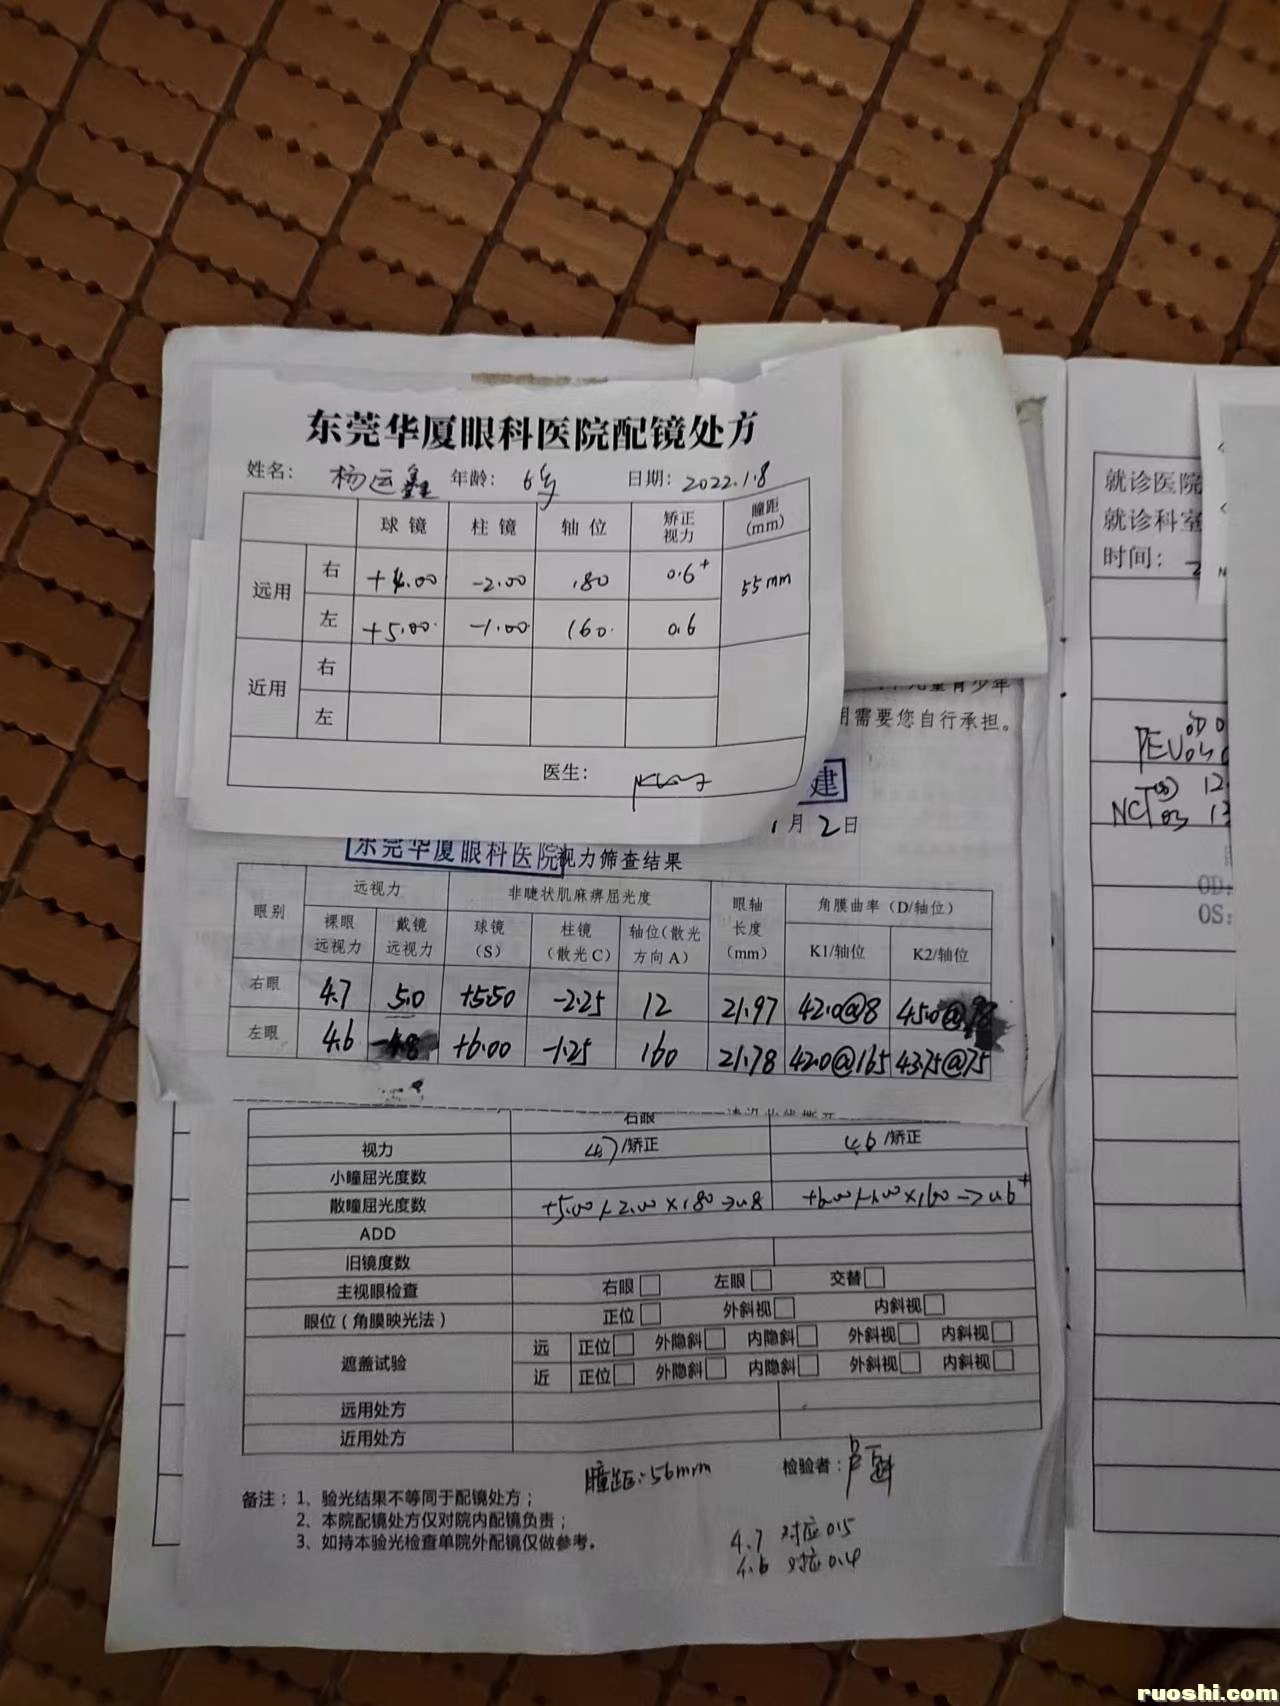 东莞华厦眼科医院配镜处方
姓名： 杨运鑫 年龄： 6岁 日期：2022.1.8
球镜 柱镜 轴位 矫正视力 瞳距(mm)
远用 右 +4.00 -2.00 180 0.6+ 55mm
左 +5.00 -1.00 160 0.6
近用 右
左
医生：
儿童青少年
用需要您自行承担。
建
1月2日
东莞华厦眼科医院视力筛查结果
眼别 远视力 非睫状肌麻痹屈光度 眼轴长度(mm) 角膜曲率（D/轴位）
裸眼远视力 戴镜远视力 球镜(S) 柱镜(散光C) 轴位(散光方向A) K1/轴位 K2/轴位
右眼 4.7 5.0 +5.50 -2.25 12 21.97 42.0@8 45.0@98
左眼 4.6 4.8 +6.00 -1.25 160 21.78 42.0@165 43.75@75
右眼
视力 4.7/矫正 4.6/矫正
小瞳屈光度数
散瞳屈光度数 +5.00/-2.00×180→0.8 +6.00/-1.00×160→0.6+
ADD
旧镜度数
主视眼检查 右眼□ 左眼□ 交替□
眼位（角膜映光法） 正位□ 外斜视□ 内斜视□
遮盖试验 远 正位□ 外隐斜□ 内隐斜□ 外斜视□ 内斜视□
近 正位□ 外隐斜□ 内隐斜□ 外斜视□ 内斜视□
远用处方
近用处方
瞳距：56mm 检验者：
备注：1、验光结果不等同于配镜处方；
2、本院配镜处方仅对院内配镜负责；
3、如持本验光检查单院外配镜仅做参考。
4.7 对应0.5
4.6 对应0.4
就诊医院
就诊科室
时间：2
NCT
OD:
OS:
ruoshi.com